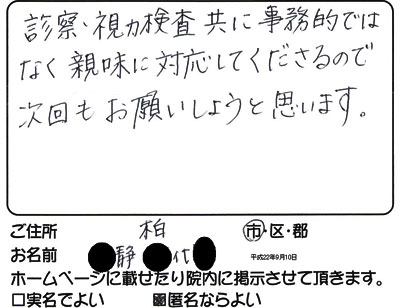 診察・視力検査共に事務的では
なく親味に対応してくださるので
次回もお願いしようと思います。
ご住所 柏 市・区・郡
お名前 静 代 平成22年9月10日
ホームページに載せたり院内に掲示させて頂きます。
□実名でよい ■匿名ならよい